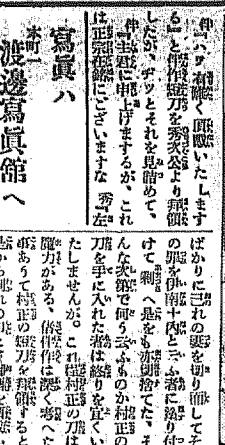 件『ハッ有難く頂戴いたします
る』と件作短刀を秀次公より拜領
したが、ヂッとそれを見詰めて、
件『主君に申上げまするが、これ
は正宗在銘にございますな　秀『左
寫眞ハ
本町一
渡邊寫眞館へ
ばかりに己れの妻を切り而してそ
の罪を伊南十內と云ふ者に塗り付
けて剩へ是をも亦切捨てた、そ
んな次第で何う云ふものか村正の
刀を手に入れた者は終りを宜くい
たしませんが。これは村正の刀は
魔力がある、佐伴作は深く考へた
事あうて村正の短刀を拜領すると